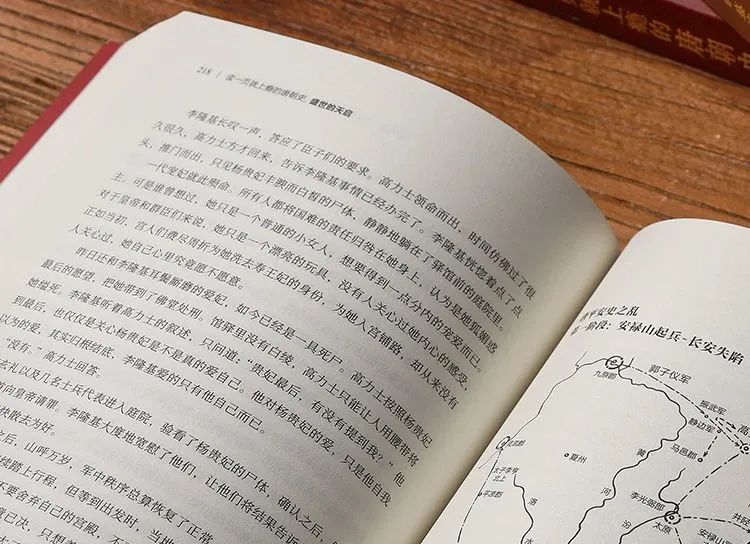 上瘾的唐朝史
218 | 读一页就上瘾的唐朝史·盛世的天启
李隆基长叹一声，答应了臣子们的要求。高力士领命而出，时间仿佛过了很
久很久，高力士方才回来，告诉李隆基事情已经办完了。李隆基恍惚着点了点
头，推门而出，只见杨贵妃丰腴而白皙的尸体，静静地躺在了驿馆前的庭院里。
一代宠妃就此殒命。所有人都将国难的责任归咎在她身上，认为是她狐媚惑
主，可是谁曾想过，她只是一个普通的小女人，想要得到一点分内的宠爱而已。
对于皇帝和群臣们来说，她只是一个漂亮的玩具，没有人关心过她内心的感受，
正如当初，宫人们费尽周折为她洗去寿王妃的身份，为她入宫铺路，却从来没有
人关心过，她自己心里究竟愿不愿意。
昨日还和李隆基耳鬓厮磨的爱妃，如今已经是一具死尸。高力士按照杨贵妃
最后的愿望，把她带到了佛堂处刑。馆驿里没有白绫，高力士只能让人用腰带将
她缢死。李隆基听着高力士的叙述，只问道：“贵妃最后，有没有提到我？”他
到最后，也仅仅是关心杨贵妃是不是真的爱自己。他对杨贵妃的爱，只是他自我
以为的爱，其实归根结底，李隆基爱的只有他自己而已。
“没有。”高力士回答。
玄礼以及几名士兵代表进入庭院，验看了杨贵妃的尸体，确认之后，
向皇帝谢罪。李隆基大度地宽慰了他们，让他们将结果告诉
快散去为好。
之后，山呼万岁，军中秩序总算恢复了正常
续踏上行程，但等到出发时，当地
不要舍弃自己的宫殿，不
意已决，只想着
平安史之乱
一阶段：安禄山起兵-长安失陷
九原郡
郭子仪军
振武军
静边军
马邑郡
夏州
太子李亨
北上
平凉郡
黄
河
洛
水
汾
李光弼军
太原
安禄山